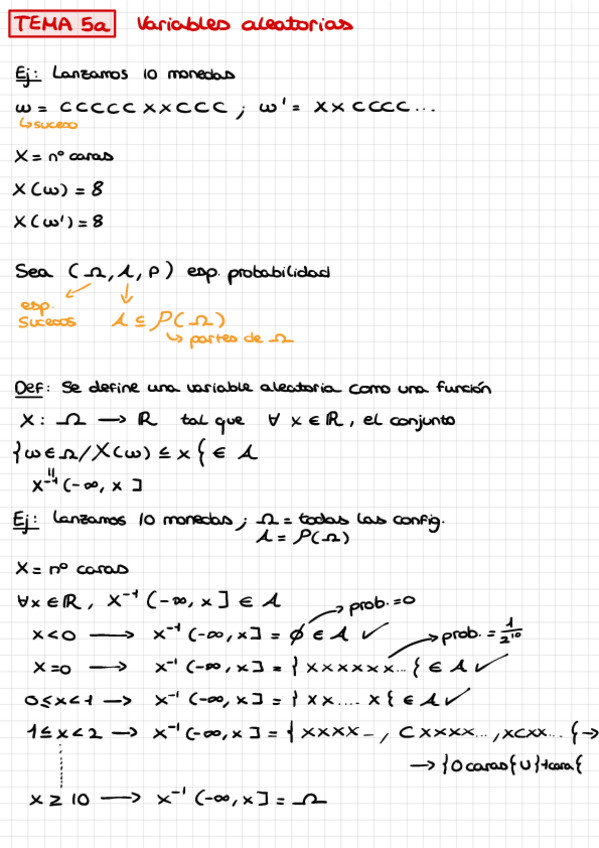 TEMA 5a Variables aleatorias
Ej: Lanzamos 10 monedas
ω = CCCCC XX CCC ; ω' = XX CCCC...
↳ suceso
X = nº caras
X(ω) = 8
X(ω') = 8
Sea (Ω, A, P) esp. probabilidad
esp. sucesos A ⊆ P(Ω)
↳ partes de Ω
Def: Se define una variable aleatoria como una función
X: Ω → ℝ tal que ∀ x ∈ ℝ, el conjunto
{ω ∈ Ω / X(ω) ≤ x} ∈ A
"
X⁻¹(-∞, x]
Ej: Lanzamos 10 monedas; Ω = todas las config.
A = P(Ω)
X = nº caras
∀x ∈ ℝ, X⁻¹(-∞, x] ∈ A
x < 0 → X⁻¹(-∞, x] = ∅ ∈ A ✓ → prob. = 0
x = 0 → X⁻¹(-∞, x] = {XXXXXX...} ∈ A ✓ → prob. = 1/2¹⁰
0 ≤ x < 1 → X⁻¹(-∞, x] = {XX....X} ∈ A ✓
1 ≤ x < 2 → X⁻¹(-∞, x] = {XXXX..., CXXXX..., XCXX...} →
→ {0 caras} U {1 cara}
x ≥ 10 → X⁻¹(-∞, x] = Ω